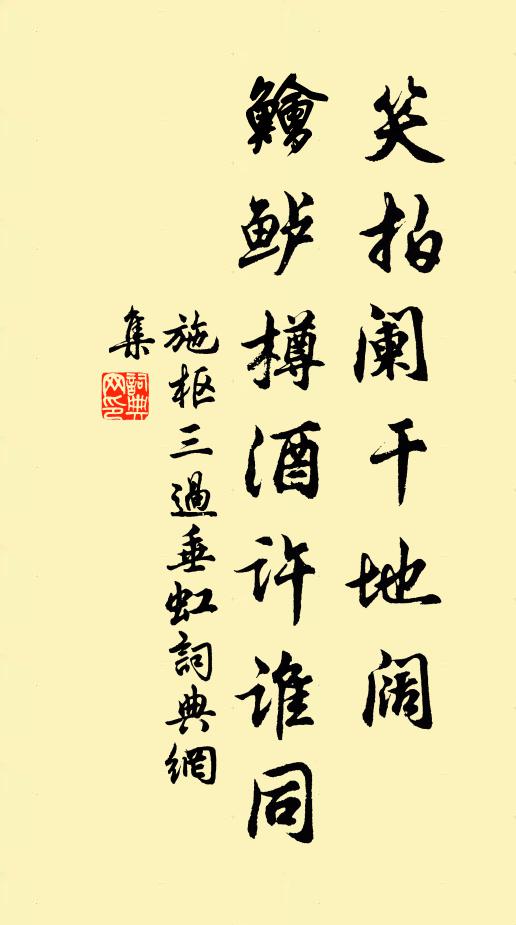 笑拍阑干地阔
鲙鲈樽酒许谁同
施枢三過垂虹詞典網
集
詞典网印